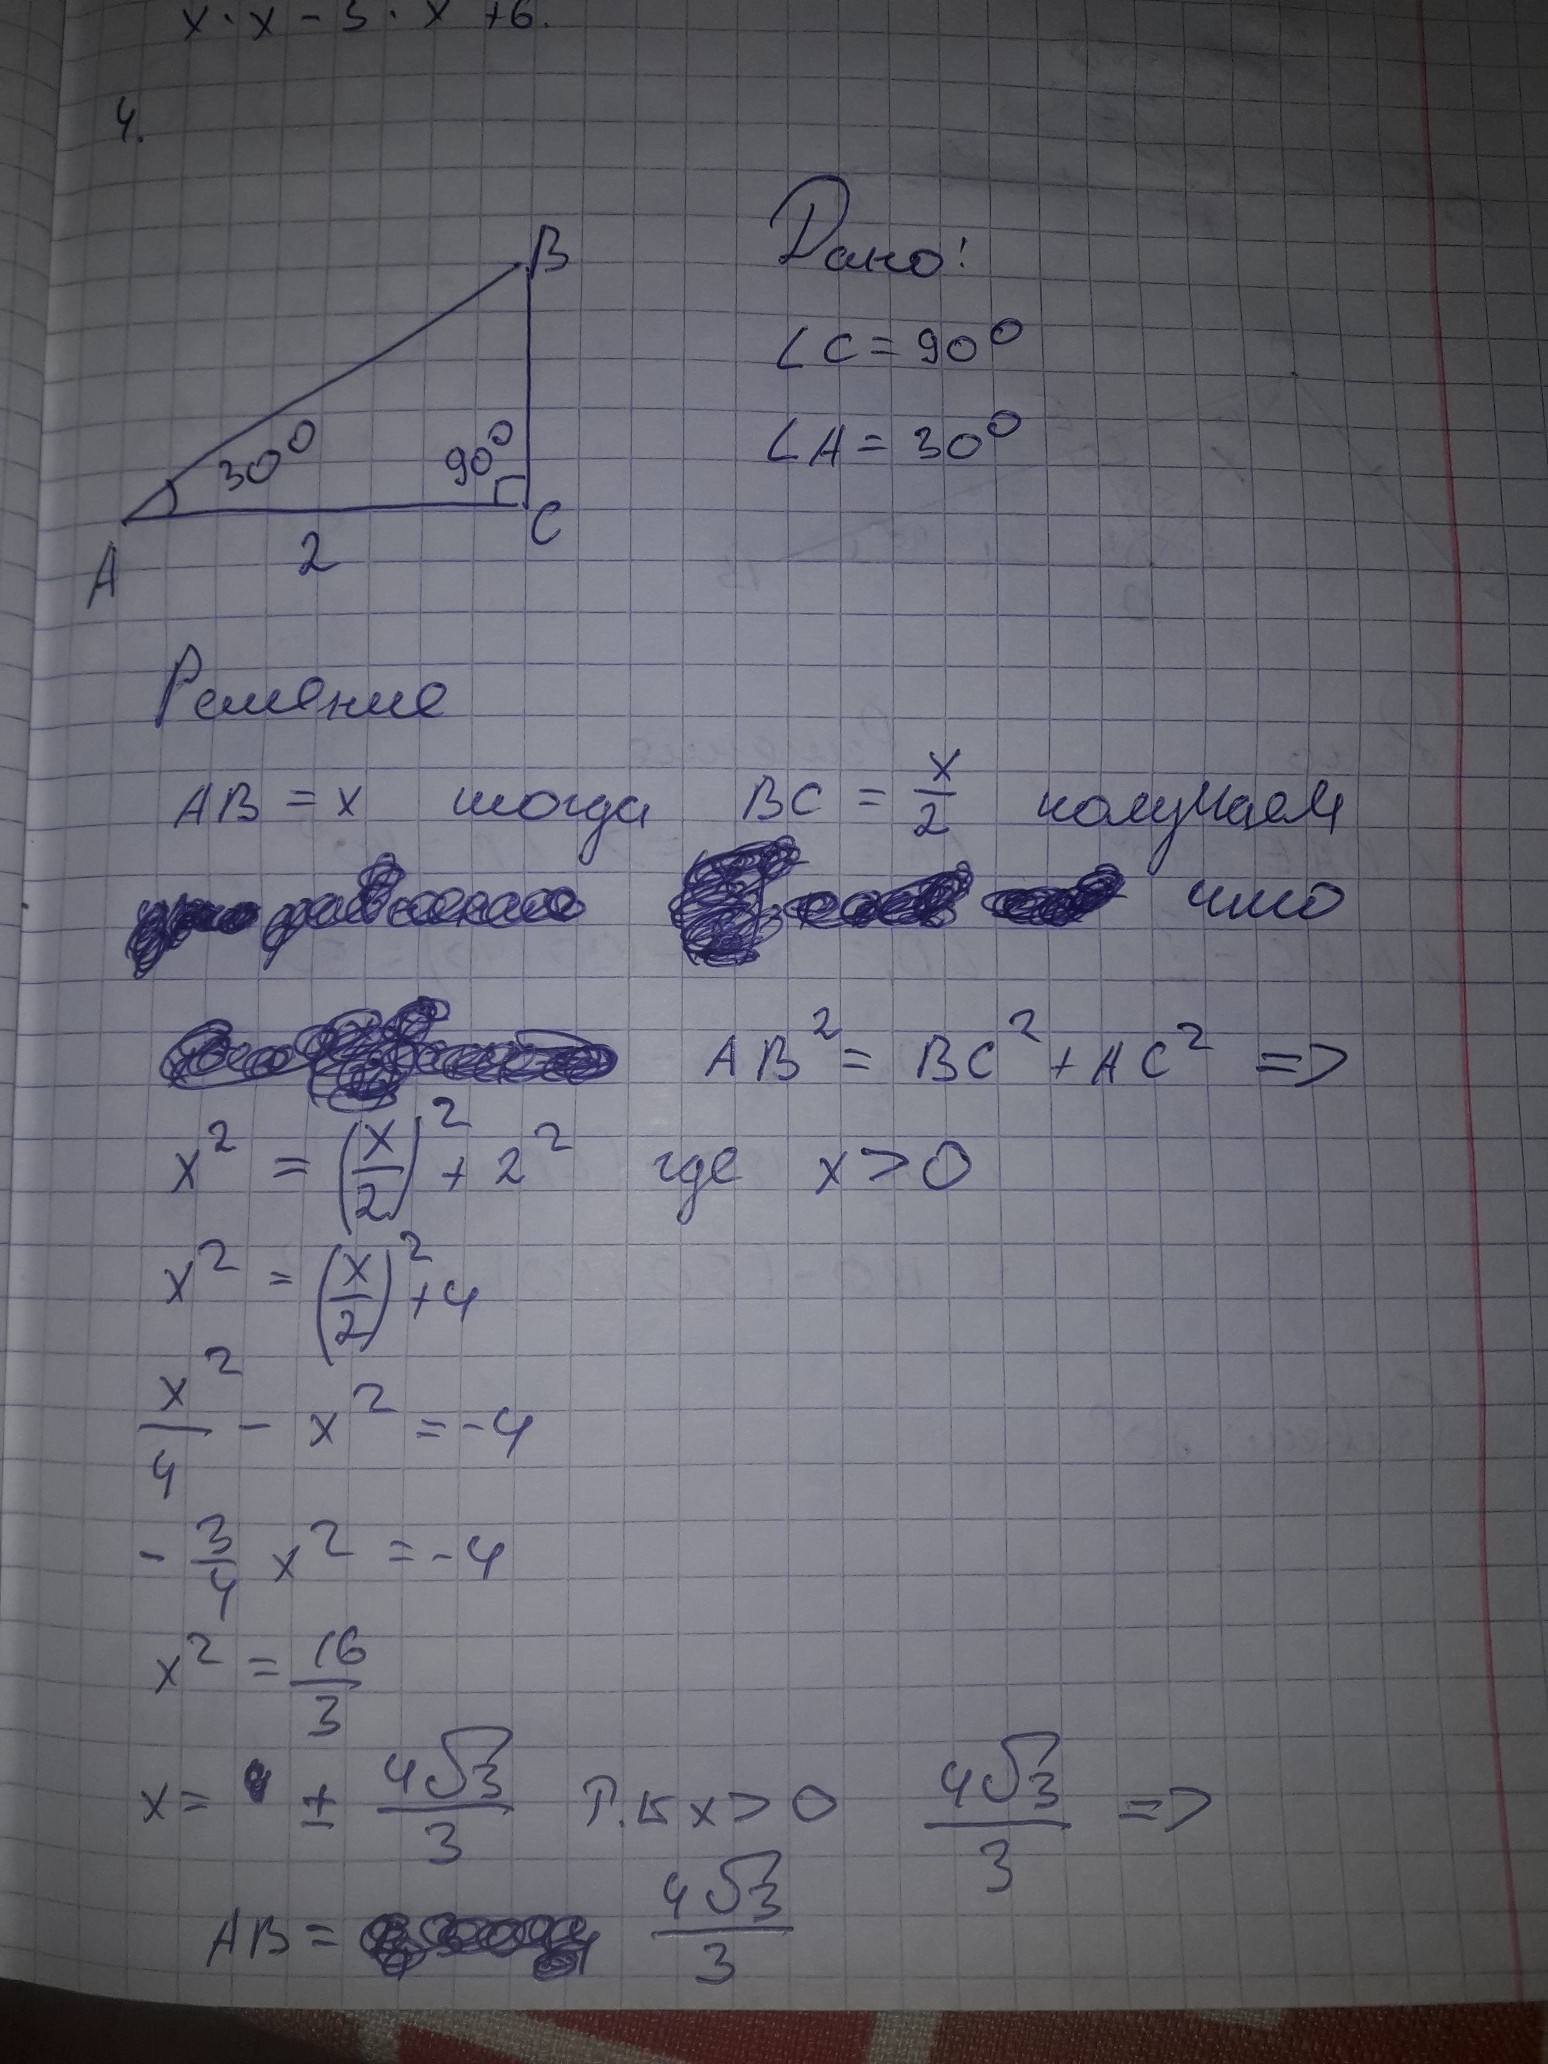 x·x-3·x+6.
4.
B
Дано!
∠C=90°
∠A=30°
30°
90°
A
2
C
Решение
AB = x тогда BC = x/2 получаем
что
AB² = BC² + AC² =>
x² = (x/2)² + 2² где x > 0
x² = (x/2)² + 4
x²/4 - x² = -4
- 3/4 x² = -4
x² = 16/3
x = ± 4√3/3 Т.к x > 0 4√3/3 =>
AB = 4√3/3